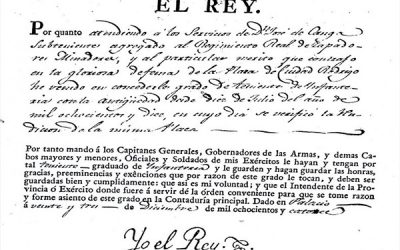 EL REY.
Por quanto atendiendo a los Servicios de Dn. José de Canga
Subteniente agregado al Regimiento Real de Zapado-
res Minadores, y al particular merito que contrajo
en la gloriosa defensa de la Plaza de Ciudad Rodrigo
he venido en concederle grado de Teniente de Ynfante-
ria con la antigüedad de dies de Julio del año de
mil ochocientos y diez, en cuyo dia se verificó la Ren-
dicion de la misma Plaza
Por tanto mando á los Capitanes Generales, Gobernadores de las Armas, y demas Ca-
bos mayores y menores, Oficiales y Soldados de mis Exércitos le hayan y tengan por
tal Teniente graduado de Ynfanteria y le guarden y hagan guardar las honras,
gracias, preeminencias y exênciones que por razon de este grado le tocan, y deben ser
guardadas bien y cumplidamente: que así es mi voluntad; y que el Intendente de la Pro-
vincia ó Exército donde fuere á servir dé la órden conveniente para que se tome razon
y forme asiento de este grado en la Contaduría principal. Dado en Palacio
á veinte y tres de Diciembre de mil ochocientos y catorce
Yo el Rey